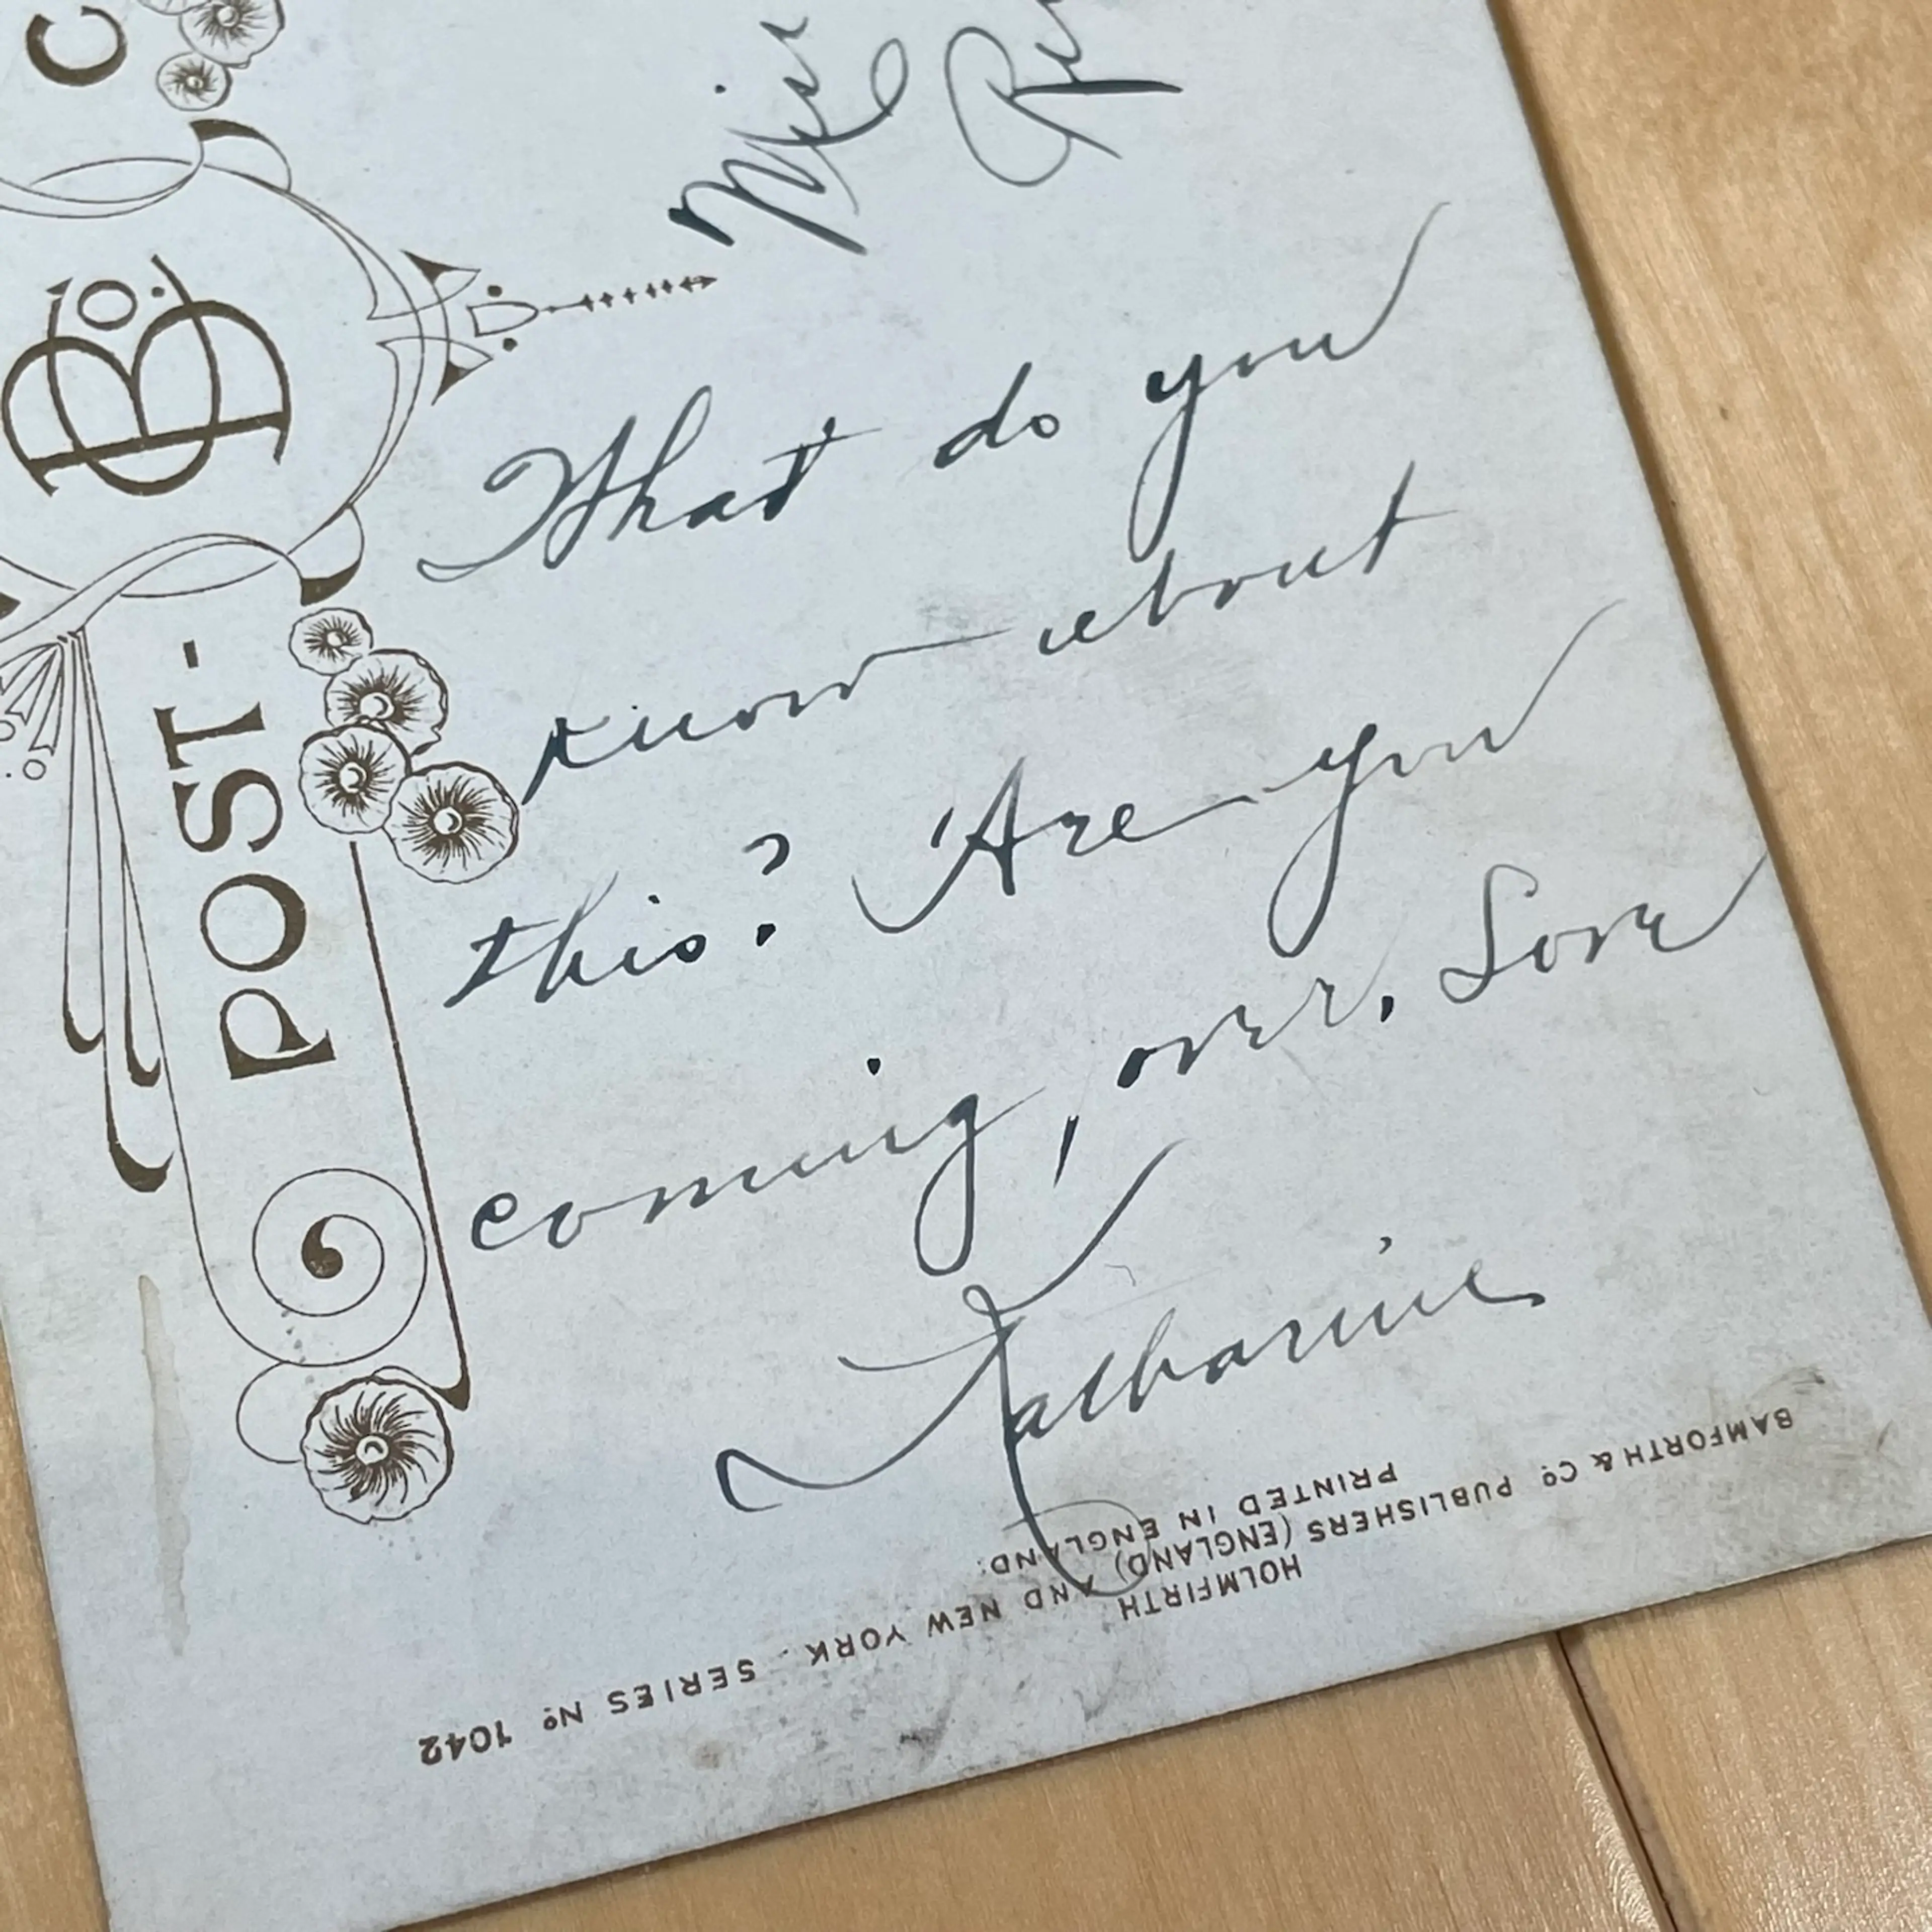 What do you
know about
this? Are you
coming, over. Love
Katharine
Miss
POST-
C
BAMFORTH & Cº PUBLISHERS (ENGLAND) AND NEW YORK. SERIES Nº 1042
PRINTED IN ENGLAND.
HOLMFIRTH